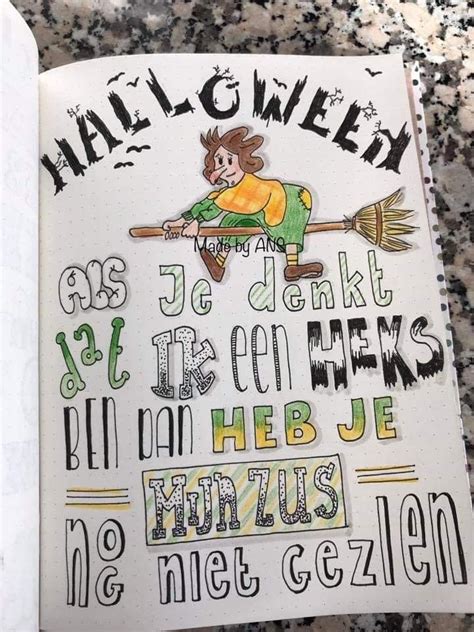 HALLOWEEN
Made by ANS
ALS Je denkt
dat IK een HEKS
BEN DAN HEB JE
MIJN ZUS
NOG NIET GEZIEN